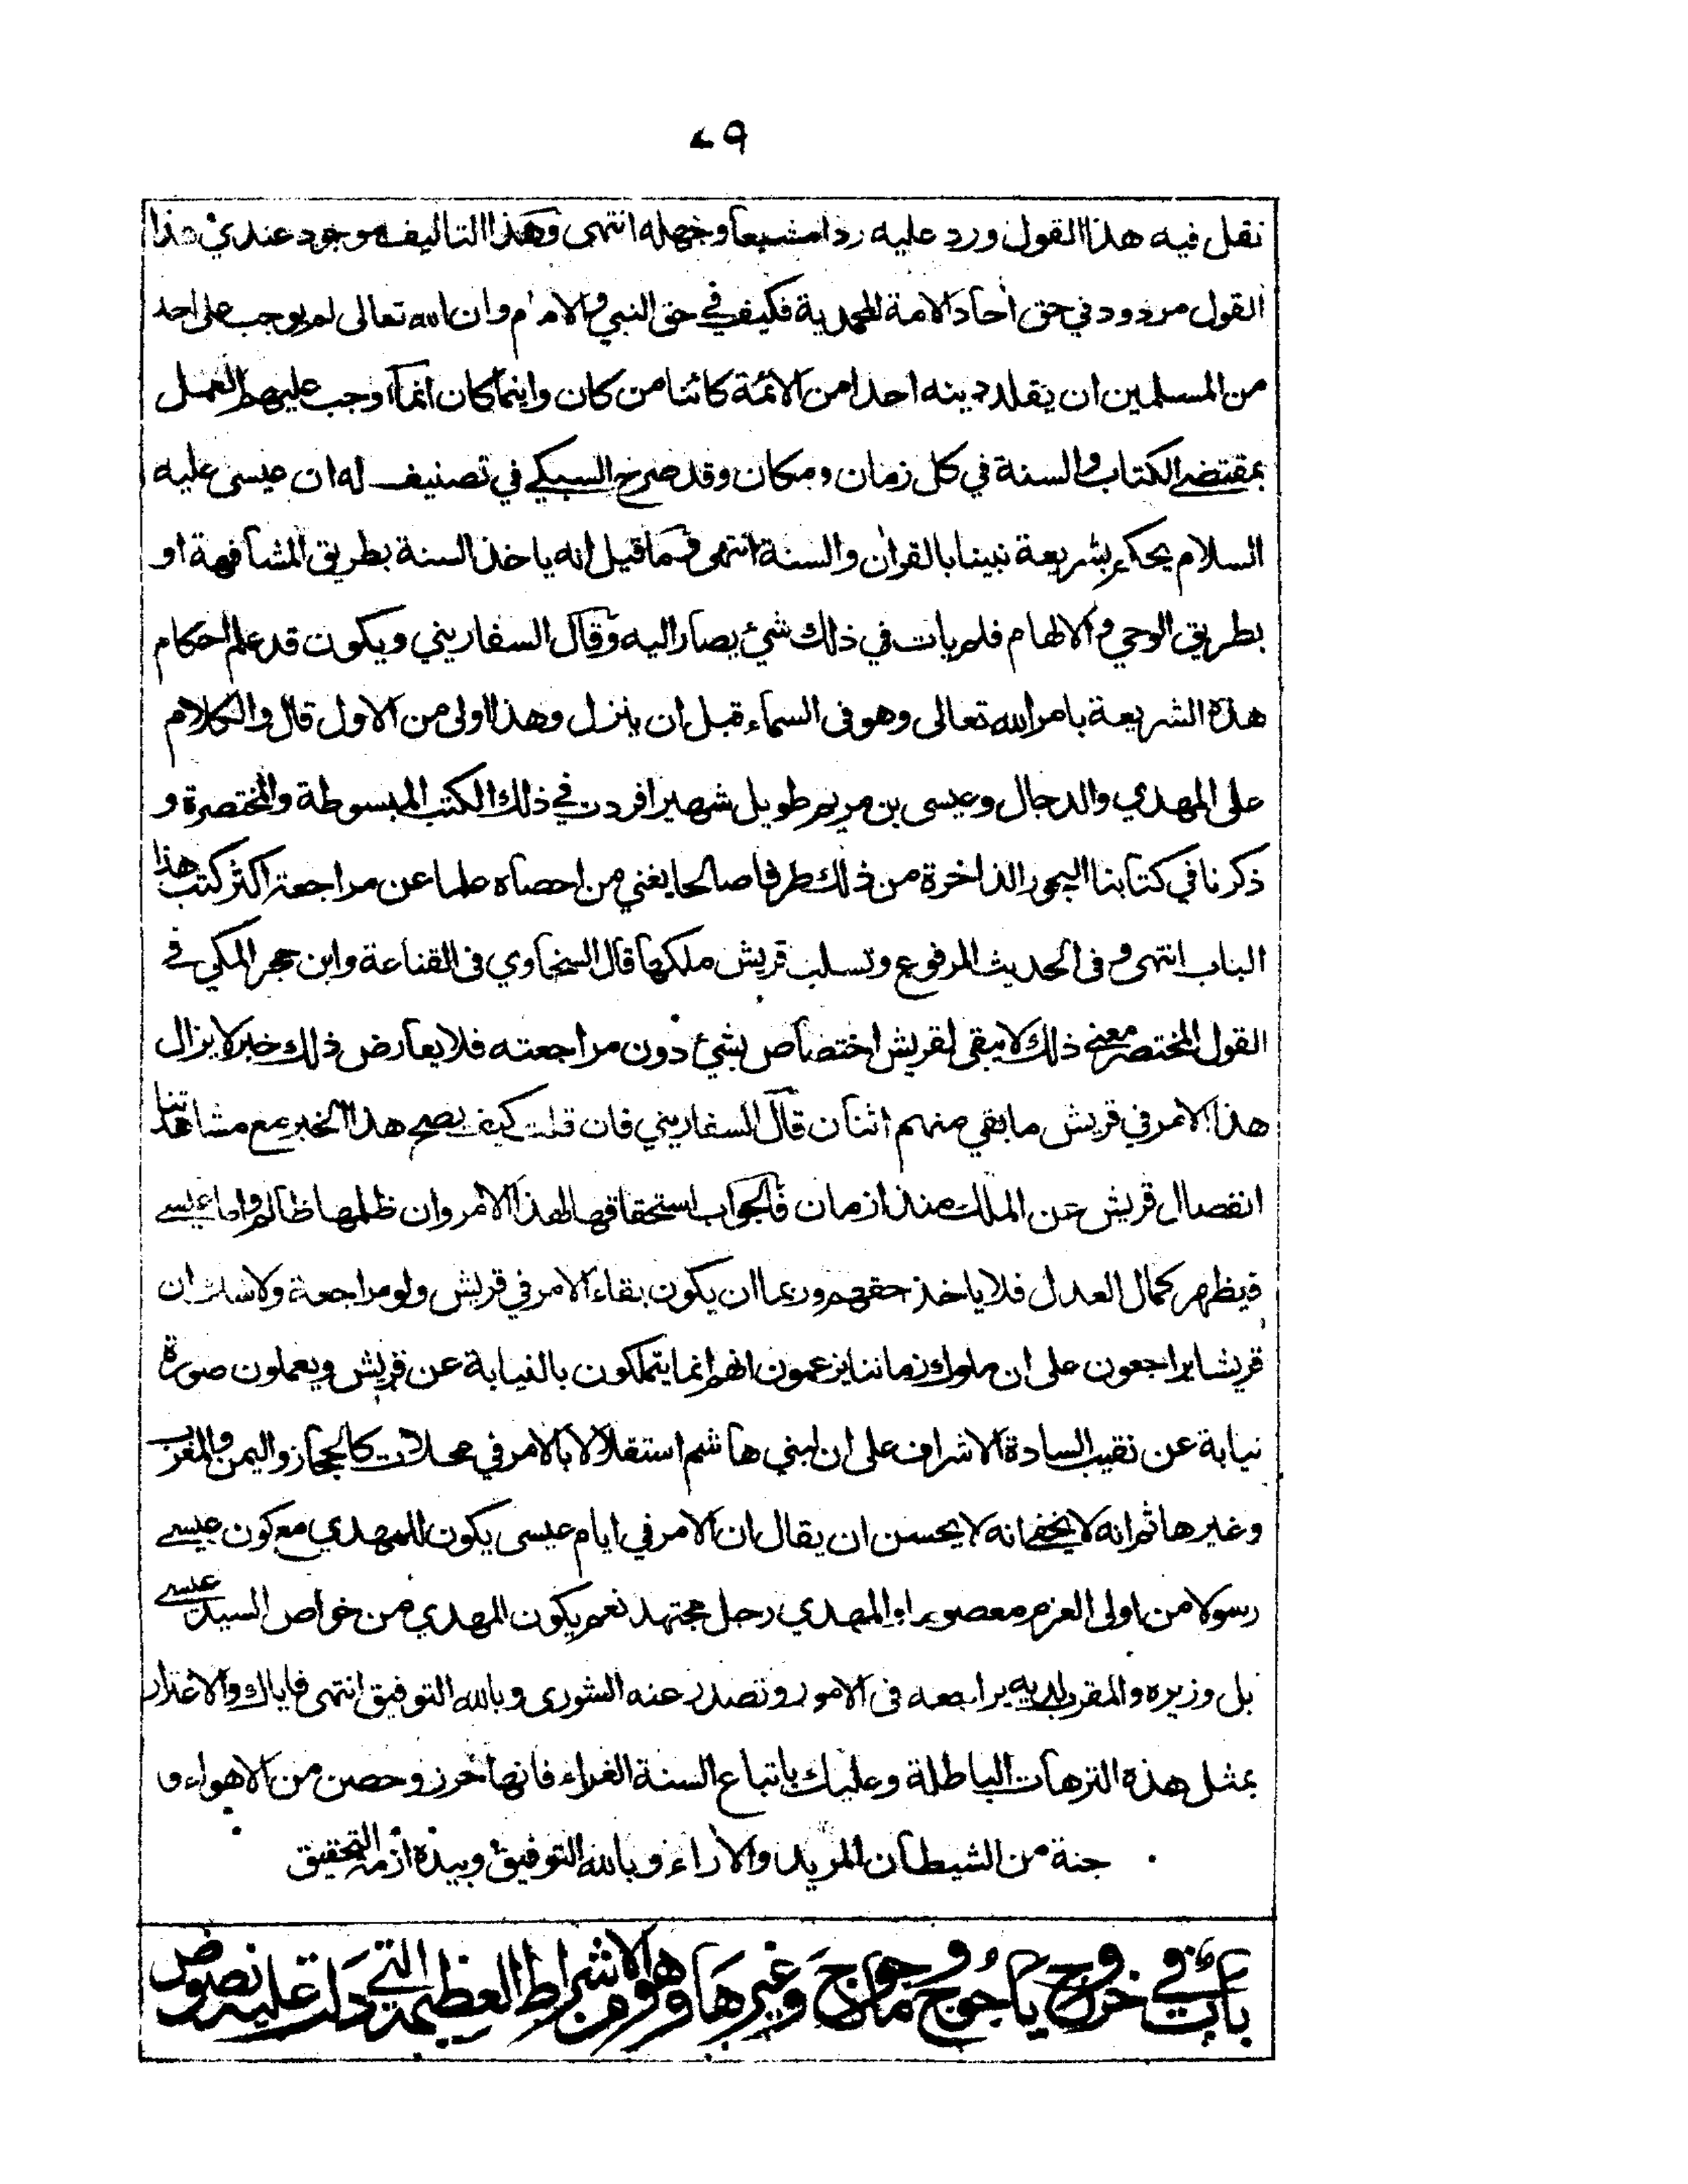 ٧٩
نقل فيه هذا القول ورد عليه ردا مشبعا وجهله انتهى وهذا التاليف موجود عندي هذا
القول مردود في حق أحاد الامة المحمدية فكيف في حق النبي والامام وان الله تعالى لم يوجب على احد
من المسلمين ان يقلد دينه احدا من الائمة كائنا من كان واينما كان انما اوجب عليهم العمل
بمقتضى الكتاب والسنة في كل زمان ومكان وقد صرح السبكي في تصنيف له ان عيسى عليه
السلام يحكم بشريعة نبينا بالقران والسنة انتهى فما قيل انه ياخذ السنة بطريق المشافهة او
بطريق الوحي والالهام فلم يات في ذلك شيء يصار اليه وقال السفاريني ويكون قد علم احكام
هذه الشريعة بامر الله تعالى وهو في السماء قبل ان ينزل وهذا اولى من الاول قال والكلام
على المهدي والدجال وعيسى بن مريم طويل شهير افردت في ذلك الكتب المبسوطة والمختصرة و
ذكرنا في كتابنا البحور الذاخرة من ذلك طرفا صالحا يغني من احصاه علما عن مراجعة اكثر كتب هذا
الباب انتهى وفي الحديث المرفوع وتسلب قريش ملكها قال السخاوي في القناعة وابن حجر المكي في
القول المختصر معنى ذلك لا يبقى لقريش اختصاص بشيء دون مراجعته فلا يعارض ذلك خبر لا يزال
هذا الامر في قريش ما بقي منهم اثنان قال السفاريني فان قلت كيف يصح هذا الخبر مع مشاهدتنا
انفصال قريش عن الملك منذ ازمان فالجواب استحقاقها لهذا الامر وان ظلمها ظالم واما عيسى
فيظهر كمال العدل فلا ياخذ حقهم وربما ان يكون بقاء الامر في قريش ولو مراجعة ولا شك ان
قريشا يراجعون على ان ملوك زماننا يزعمون انهم انما يتملكون بالنيابة عن قريش ويعملون صورة
نيابة عن نقيب السادة الاشراف على ان لبني هاشم استقلالا بالامر في محلات كالحجاز واليمن والمغرب
وغيرها ثم انه لا يخفى انه لا يحسن ان يقال ان الامر في ايام عيسى يكون للمهدي مع كون عيسى
رسولا من اولى العزم معصوما والمهدي رجل مجتهد نعم يكون المهدي من خواص السيد عيسى
بل وزيره والمقرب لديه يراجعه في الامور وتصدر عنه الشورى وبالله التوفيق انتهى فاياك والاغترار
بمثل هذه الترهات الباطلة وعليك باتباع السنة الغراء فانها حرز وحصن من الاهواء و
جنة من الشيطان المريد والاراء وبالله التوفيق وبيده ازمة التحقيق
باب في خروج ياجوج وماجوج وغيرها وهو من الاشراط العظيمة التي دلت عليه نصوص